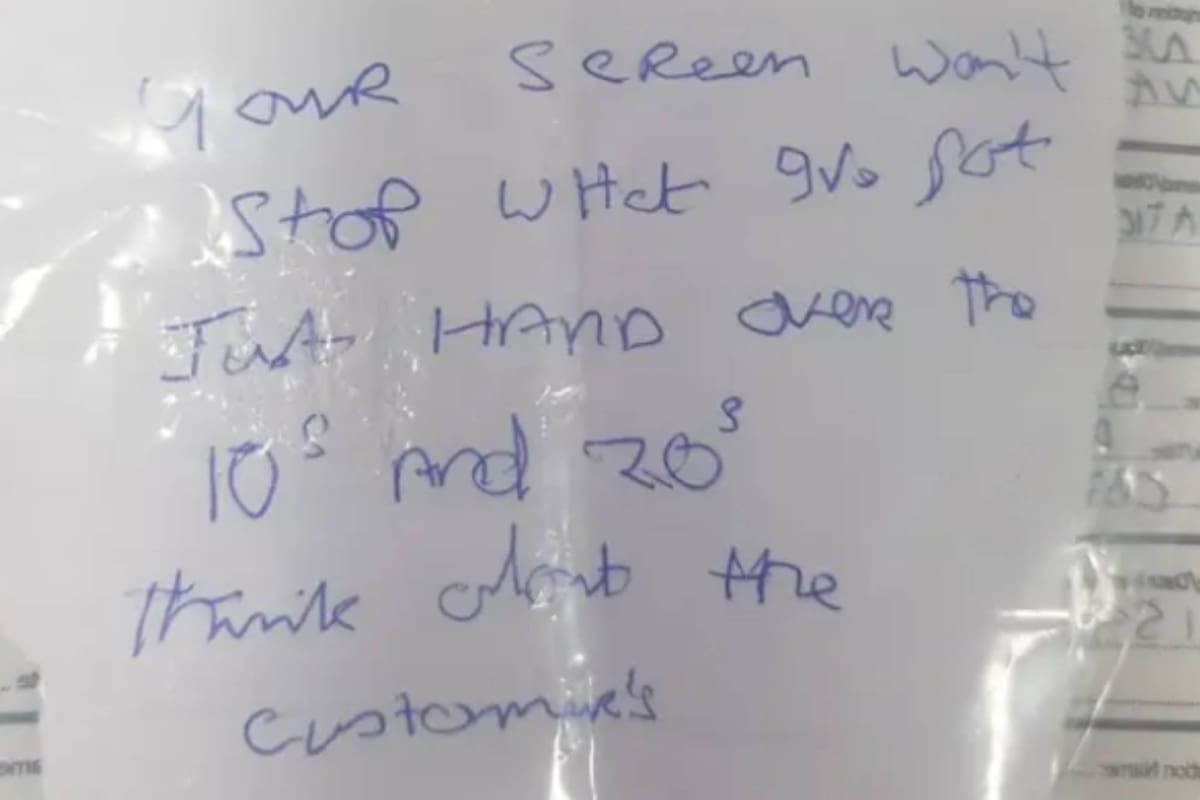 youR ScReen Won't
Stop WHat gvs got
Just HAnD oveRe The
10s And 20s
think about the
customer's